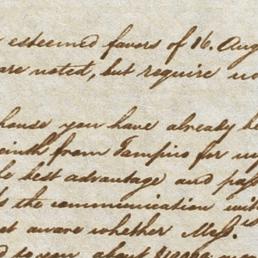 esteemed favors of 16. Aug
are noted, but require no
house you have already be
from Tampico for my
best advantage and pas
the communication with
aware whether Mess.
to you about